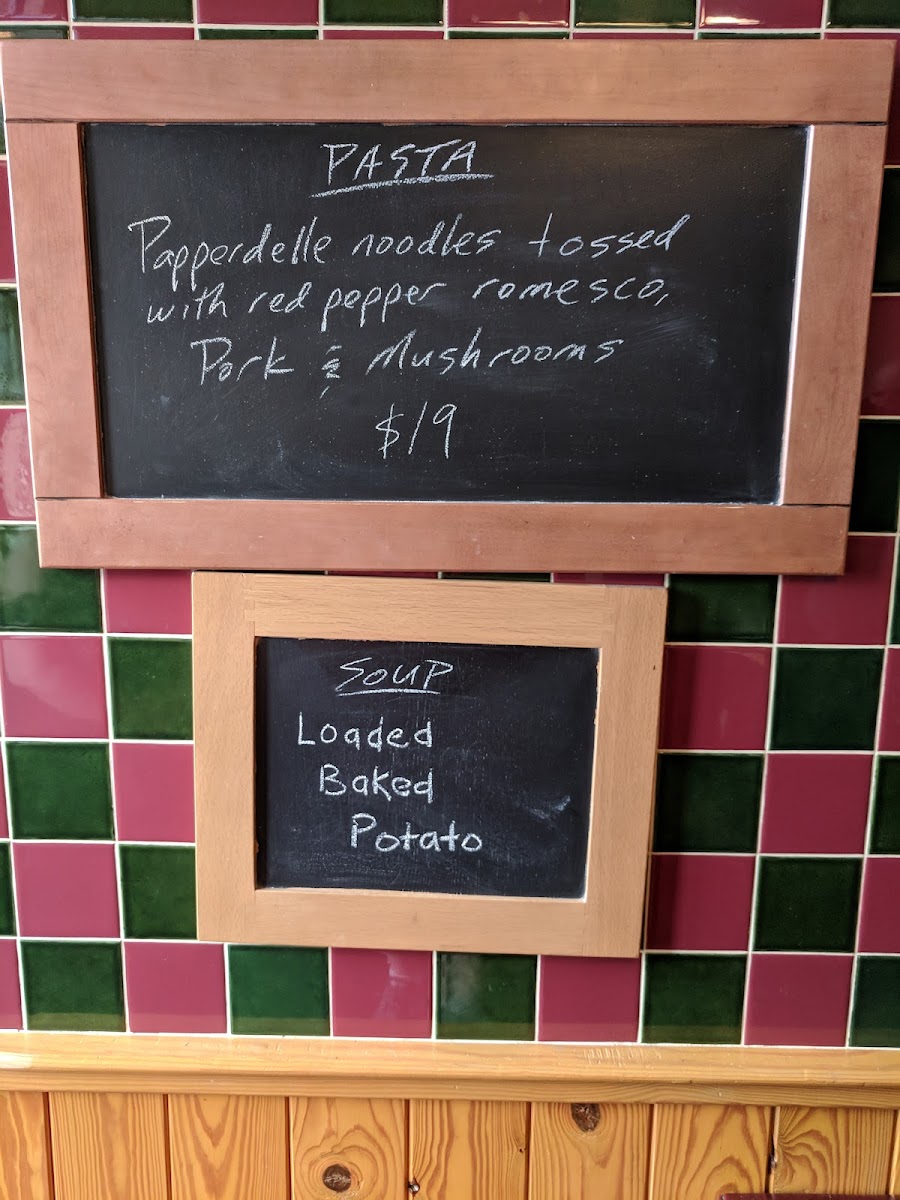 PASTA
Papperdelle noodles tossed
with red pepper romesco,
Pork & Mushrooms
$19
SOUP
Loaded
Baked
Potato